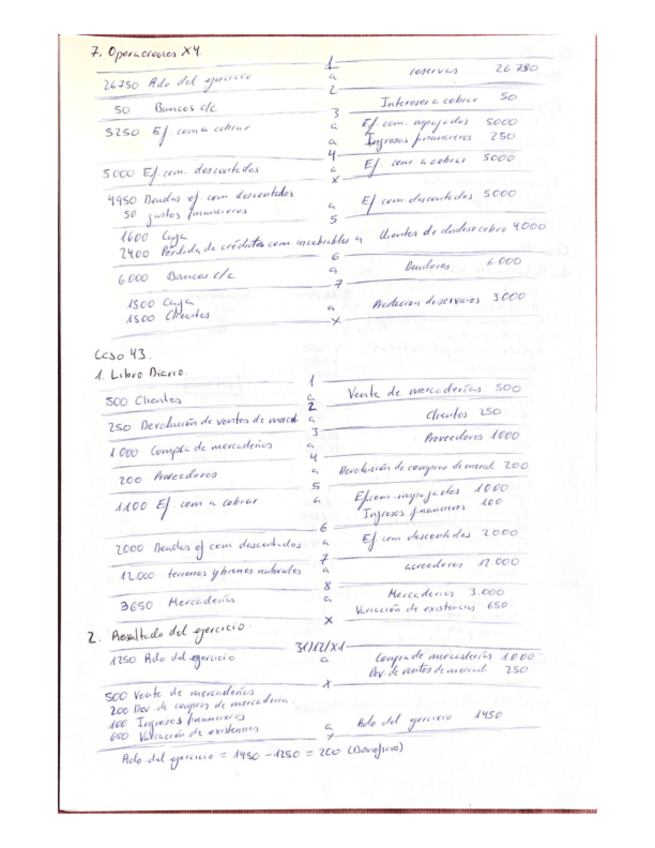 7. Operaciones X4.
1
26750 Rdo del ejercicio a reservas 26750
2
50 Bancos c/c a Intereses a cobrar 50
3
5250 Ef. com a cobrar a Ef com. impagados 5000
a Ingresos financieros 250
4
5000 Ef. com. descontados a Ef. com a cobrar 5000
x
4950 Deudas ef com descontados
50 gastos financieros a Ef com descontados 5000
5
1600 Caja
2400 Pérdida de créditos com incobrables a clientes de dudoso cobro 4000
6
6.000 Bancos c/c a Deudores 6.000
7
1500 Caja
1500 Clientes a Prestacion de servicios 3000
x
Caso 43.
1. Libro Diario.
1
500 Clientes a Venta de mercaderías 500
2
250 Devolución de ventas de mercd a Clientes 250
3
1000 Compra de mercaderías a Proveedores 1000
4
200 Proveedores a Devolución de compras de mercd. 200
5
1100 Ef. com a cobrar a Ef com. impagados 1000
Ingresos financieros 100
6
2000 Deudas ef com descontados a Ef com descontados 2000
7
12.000 terrenos y bienes naturales a acreedores 12.000
8
3650 Mercaderías a Mercaderías 3.000
Variación de existencias 650
x
2. Resultado del ejercicio.
31/12/X1
1250 Rdo del ejercicio a Compra de mercaderías 1000
Dev. de ventas de mercad. 250
x
500 Venta de mercaderías
200 Dev. de compras de mercaderia.
100 Ingresos financieros
650 Variación de existencias a Rdo del ejercicio 1450
x
Rdo del ejercicio = 1450 - 1250 = 200 (Beneficio)